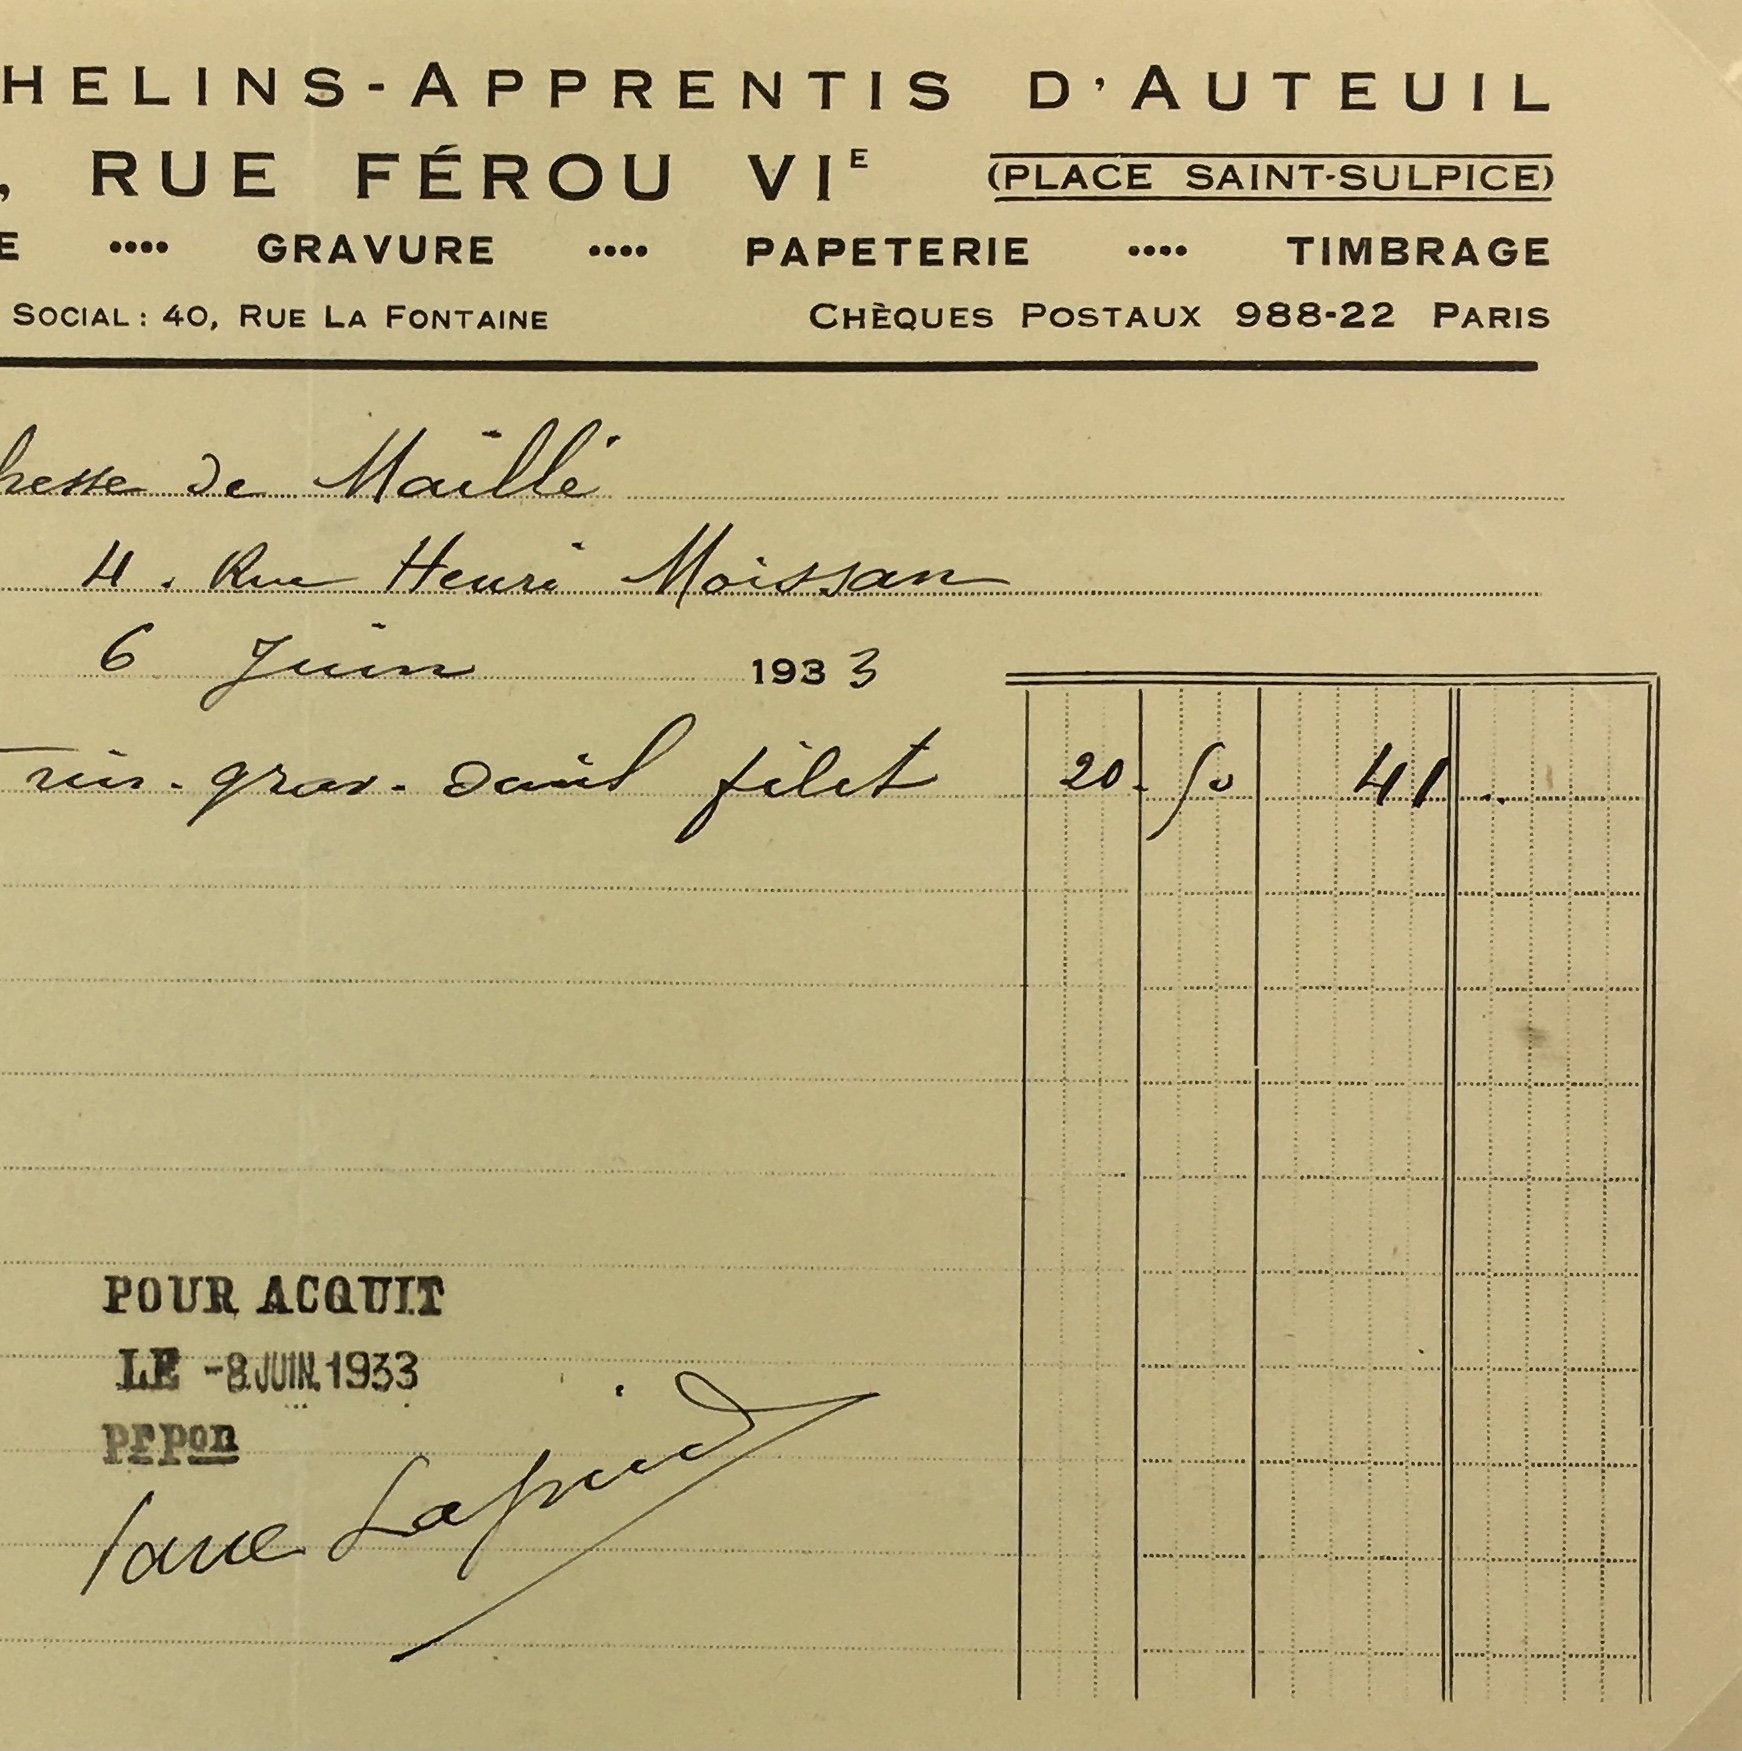 HELINS-APPRENTIS D'AUTEUIL
, RUE FÉROU VIE (PLACE SAINT-SULPICE)
E •••• GRAVURE •••• PAPETERIE •••• TIMBRAGE
SOCIAL : 40, RUE LA FONTAINE CHÈQUES POSTAUX 988-22 PARIS
hesse de Maillé
4. Rue Henri Moissan
6 Juin 1933
vis. grav. deuil filet 20. 50 41 ..
POUR ACQUIT
LE -8 JUIN 1933
pr pon